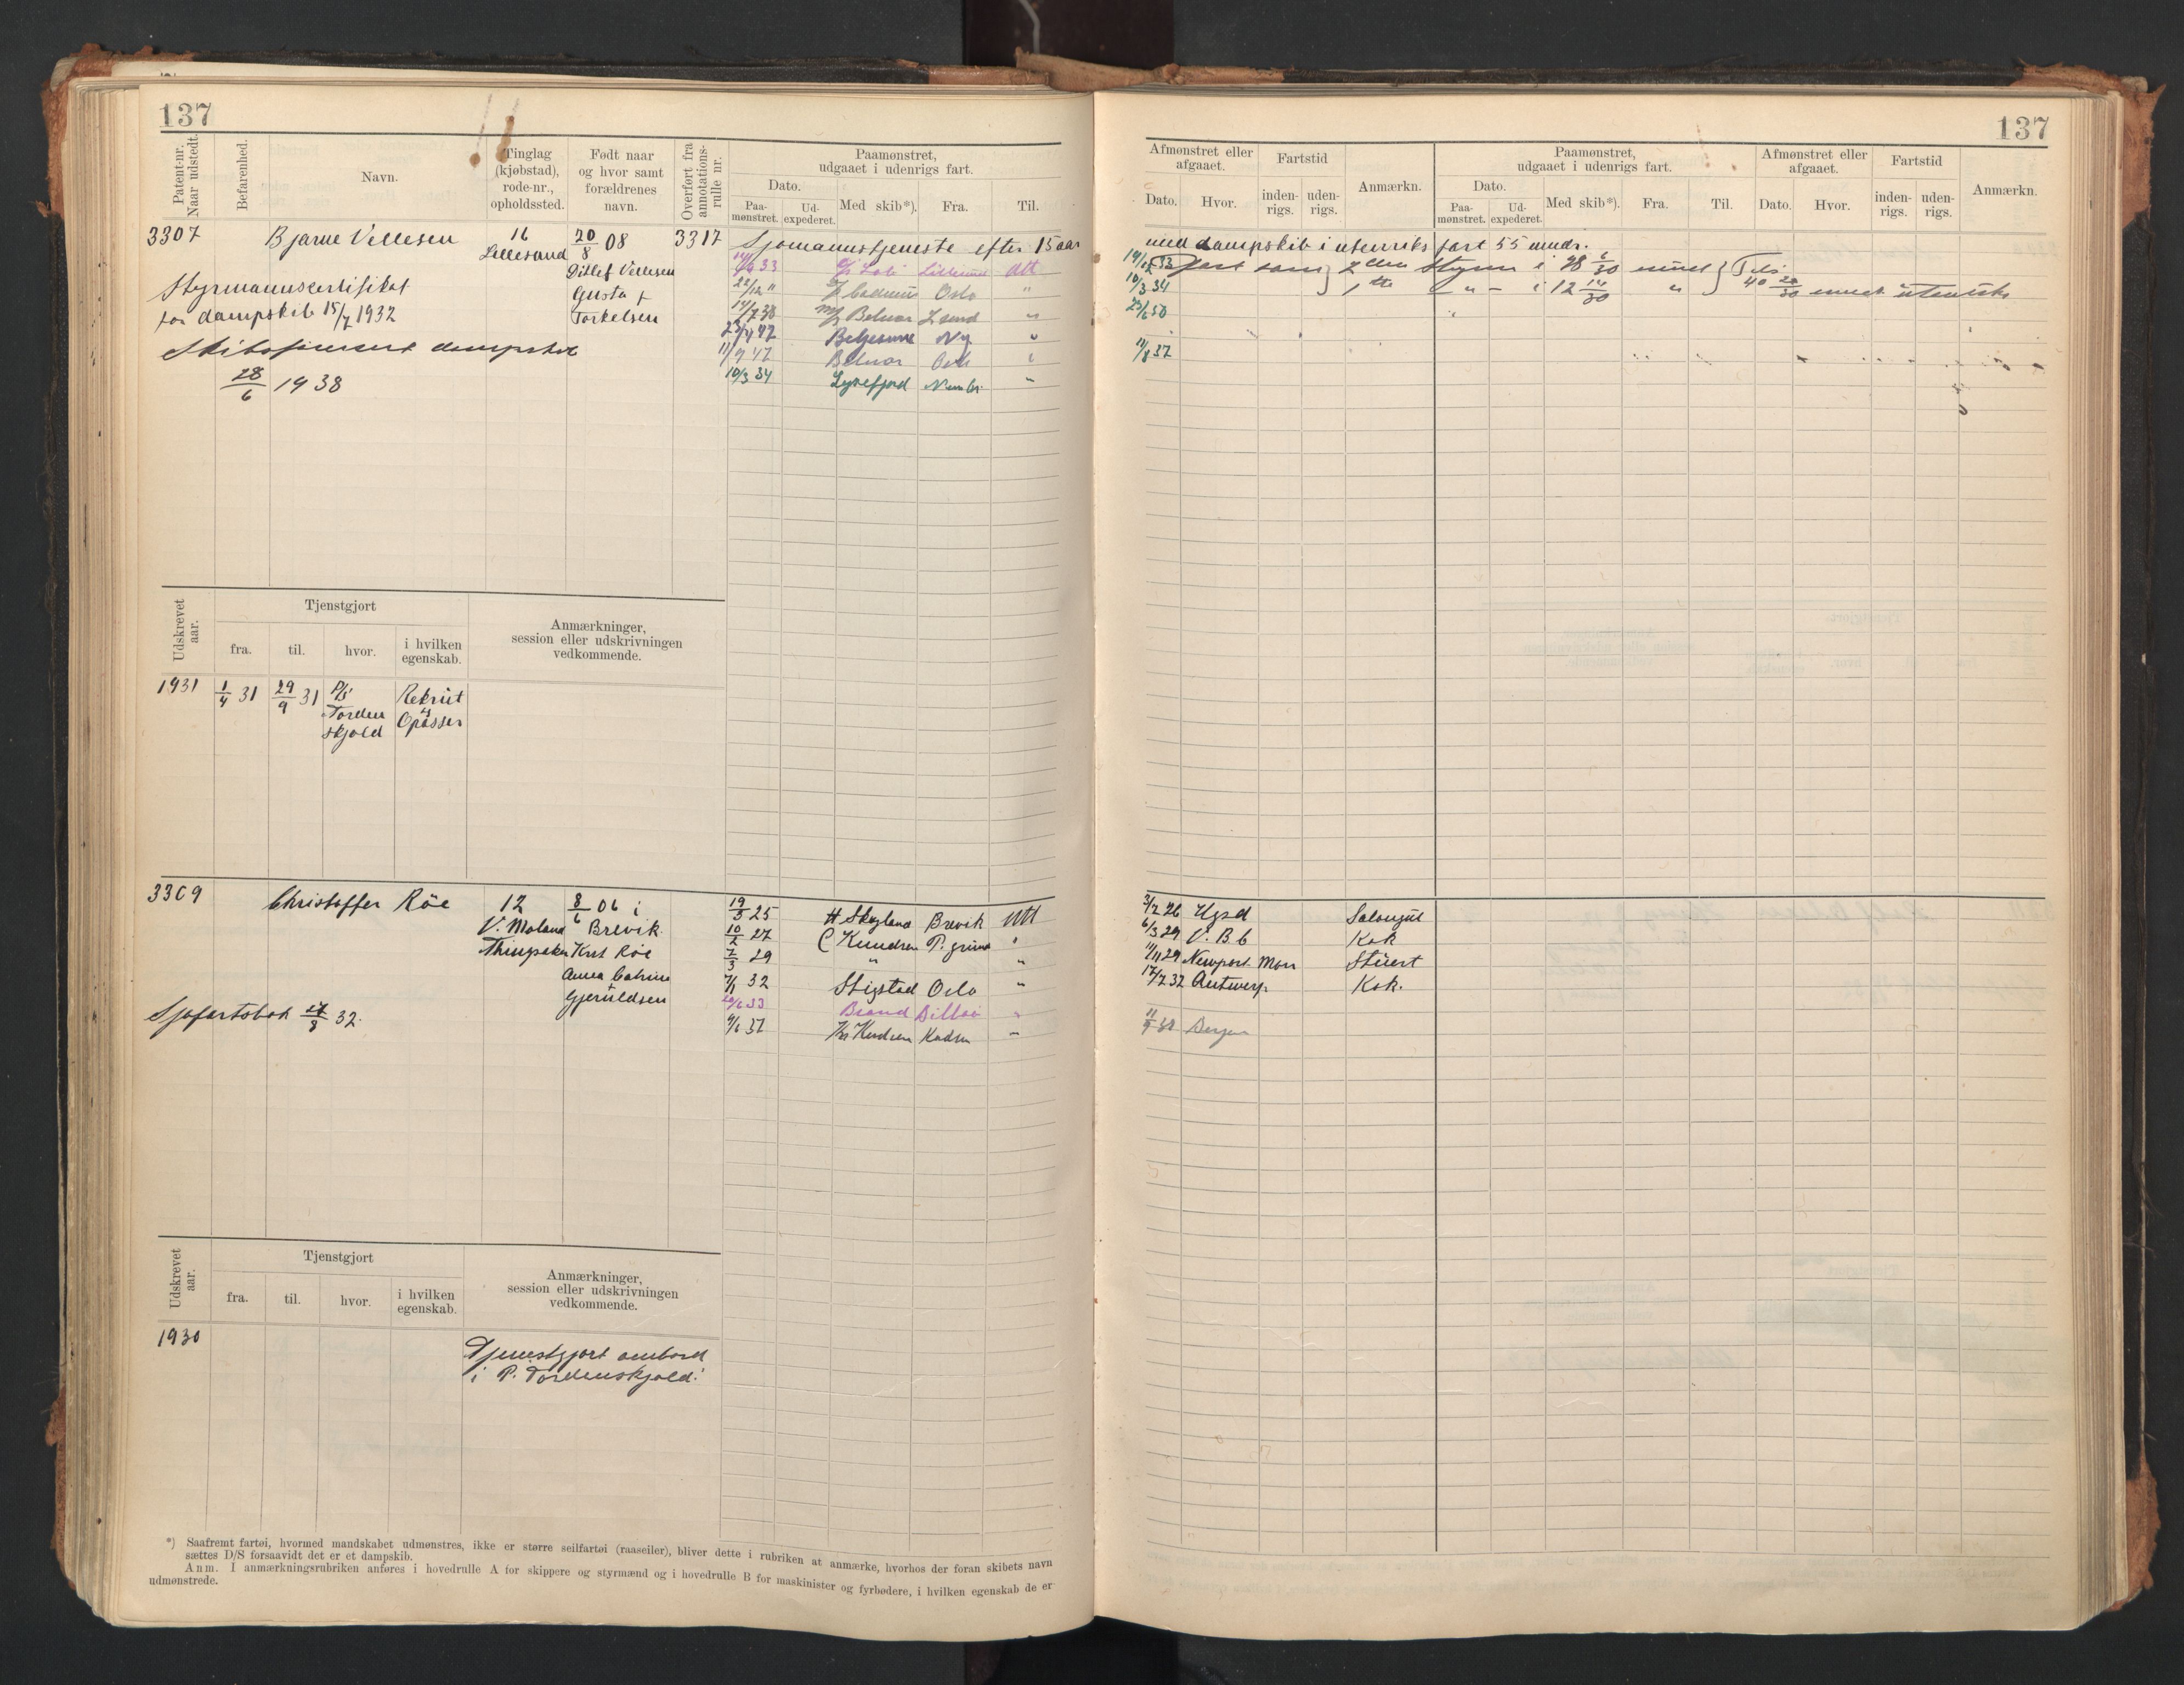 137
Patent-nr. Naar udstedt.
Befarenhed.
Navn.
Tinglag (kjøbstad), rode-nr., opholdssted.
Født naar og hvor samt forældrenes navn.
Overført fra annotations-rulle nr.
Paamønstret, udgaaet i udenrigs fart.
Dato.
Paa-mønstret.
Ud-expederet.
Med skib*).
Fra.
Til.
3307
Bjarne Vellesen
16
Lillesand
20/8 08
Ditlef Vellesen
Gusta f
Torkelsen
3317
Sjømannstjeneste efter 15 aar
Styrmannscertifikat
for dampskib 15/7 1932
28/6 1938
33 Lillesand Att
22/12 " Oslo "
14/7 38 M/S Belnor L sand "
Ny "
11/9 47 Belnor
10/3 34 Lysefjord "
Udskrevet aar.
Tjenstgjort
fra.
til.
hvor.
i hvilken egenskab.
Anmærkninger, session eller udskrivningen vedkommende.
1931
1/4 31
29/9 31
P/S Tordenskjold
Rekrut
Opasser
3309
Christoffer Röe
12
V. Moland
8/6 06 i
Brevik
Krst Röe
Anna Catrine
Gjeruldsen
Sjøfartsbok 32.
19/5 25 H. Skogland Brevik Att
10/2 27 C Knudsen P. grund "
7/3 29 " "
7/1 32 Stigstad Oslo "
33 Brand "
37 Kr Knudsen "
Udskrevet aar.
Tjenstgjort
fra.
til.
hvor.
i hvilken egenskab.
Anmærkninger, session eller udskrivningen vedkommende.
1930
Tjenestgjort ombord
i P. Tordenskjold.
*) Saafremt fartøi, hvormed mandskabet udmønstres, ikke er større seilfartøi (raaseiler), bliver dette i rubriken at anmærke, hvorhos der foran skibets navn
sættes D/S forsaavidt det er et dampskib.
Anm. I anmærkningsrubriken anføres i hovedrulle A for skippere og styrmænd og i hovedrulle B for maskinister og fyrbødere, i hvilken egenskab de er
udmønstrede.
137
Afmønstret eller afgaaet.
Dato.
Hvor.
Fartstid
inden-rigs.
uden-rigs.
Anmærkn.
Paamønstret, udgaaet i udenrigs fart.
Dato.
Paa-mønstret.
Ud-expederet.
Med skib*).
Fra.
Til.
Afmønstret eller afgaaet.
Dato.
Hvor.
Fartstid
inden-rigs.
uden-rigs.
Anmærkn.
med dampskib i utenriks fart 55 mndr.
fart som 2den Styrm i 28 6/30 mnd
10/3 34 1ste " i 12 14/30 " 40 20/30 mnd utenriks
11/8 37
3/2 26 Ugsd
6/3 29 V. B. b Kok
11/11 29 Newport Mon Stuert
17/7 32 Antwerp. Kok.
11/9 38 Bergen